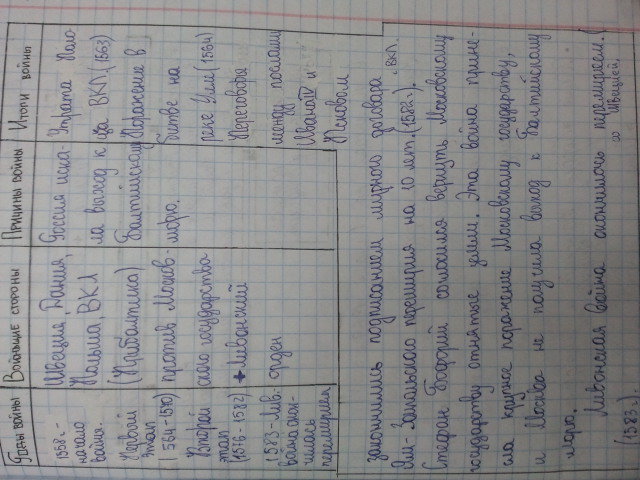 Годы войны
Воюющие стороны
Причины войны
Итоги войны
1558г.-
начало
войны.
Первый
этап
(1564-1570)
Второй
этап
(1576-1582)
1583-Лив.
война окон-
чилась
перемирием
Швеция, Дания,
Польша, ВКЛ
(Прибалтика)
против Москов
ского государства
+ Ливонский
орден
Россия иска-
ла выход к
Балтийскому
морю.
Утрата Поло-
ца ВКЛ.(1563)
Поражение в
битве на
реке Улле (1564)
Переговоры
между послами
Ивана IV и
Псковом
закончились подписанием мирного договора
Ям-Запольского перемирия на 10 лет.(1582г.). ВКЛ.
Стефан Баторий согласился вернуть Московскому
государству отнятые земли. Эта война прине-
сла крупное поражение Московскому государству,
и Москва не получила выход к Балтийскому
морю.
Ливонская война окончилась перемирием со Швецией
(1583г.)